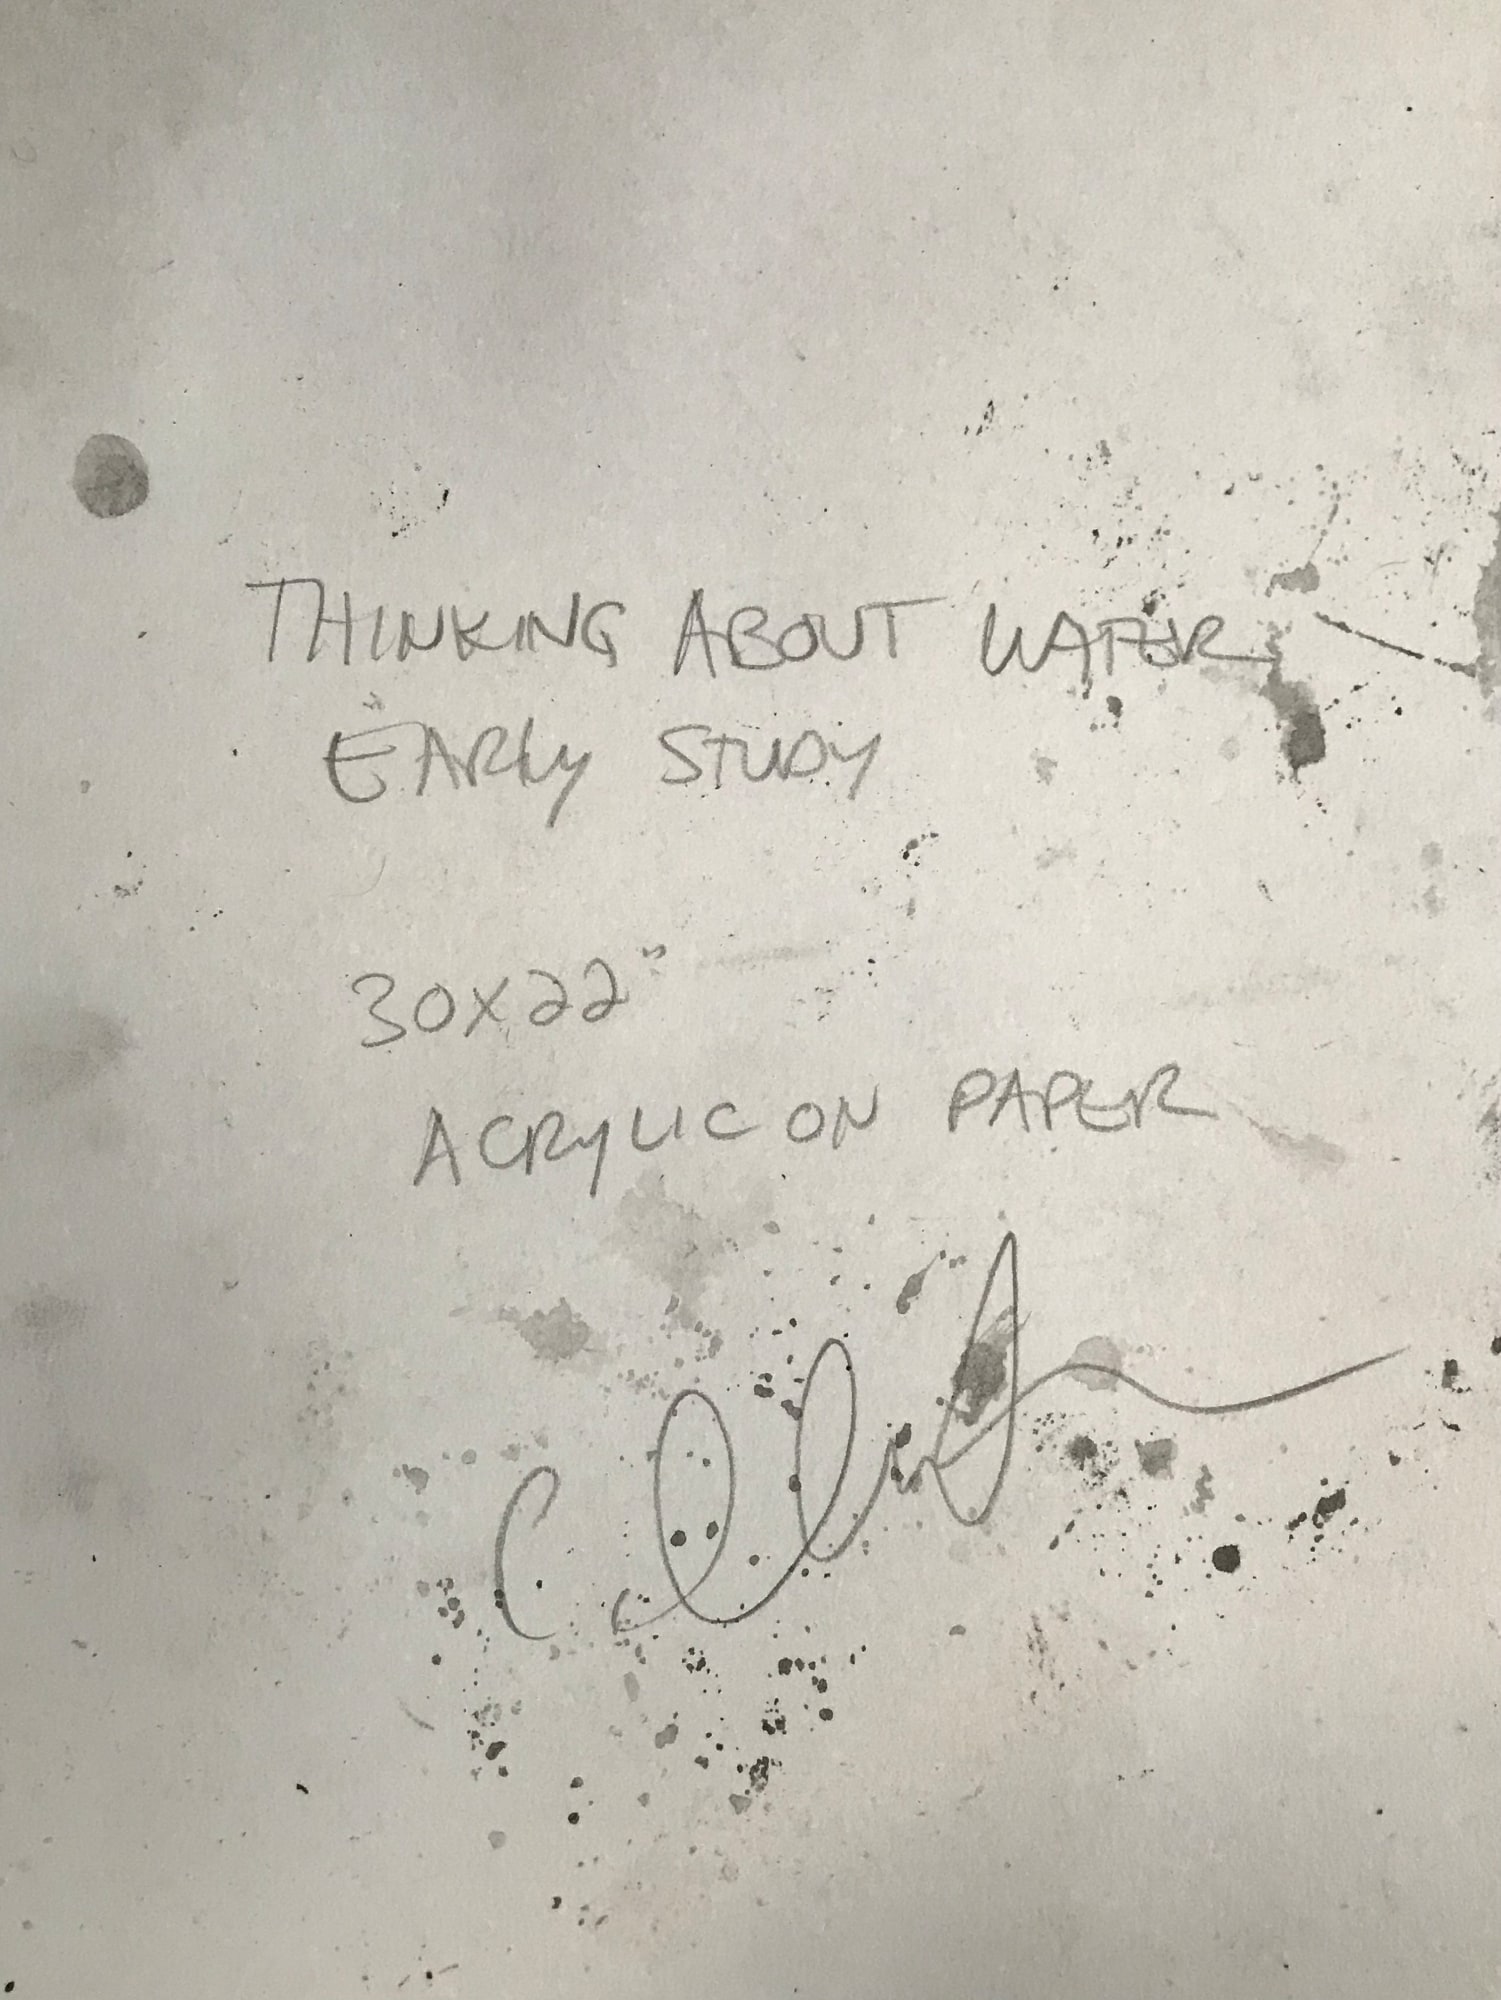 THINKING ABOUT WATER
EARLY STUDY
30X22"
ACRYLIC ON PAPER